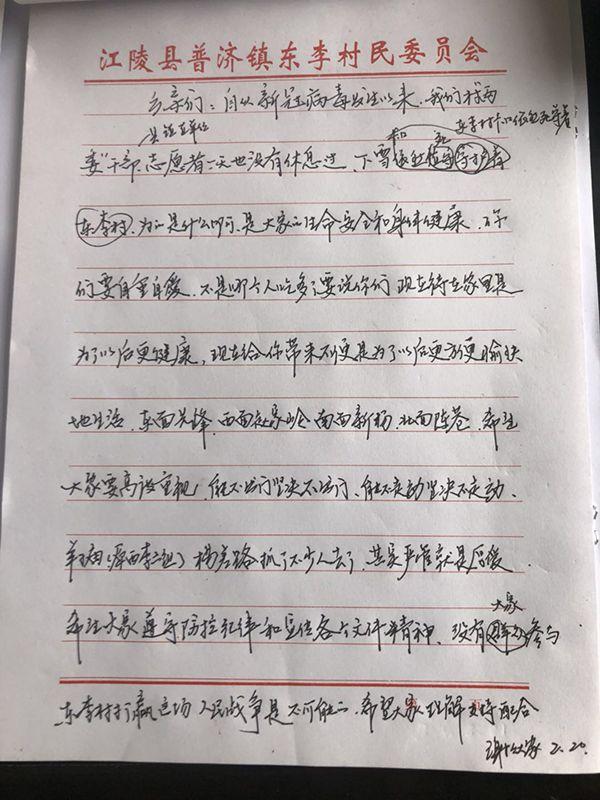 江陵县普济镇东李村民委员会
乡亲们：自从新冠病毒发生以来，我们村两
委干部、志愿者一天也没有休息过，下雪依然
东李村，为的是什么呀，是大家的生命安全和身体健康，你
们要自重自爱，不是哪个人吃多了要说你们，现在待在家里是
为了以后更健康，现在给你带来不便是为了以后更方便更愉快
地生活，东面先锋，西面赵家，南面新杨，北面陈苍，希望
大家要高度重视，能不出门坚决不出门，能不走动坚决不走动，
羊庙（原西李三组）杨岔路抓了不少人去了，其实严准就是厚爱
希望大家遵守防控纪律和各个文件精神，没有大家参与
东李村打赢这场人民战争是不可能的，希望大家理解支持配合
2.20.